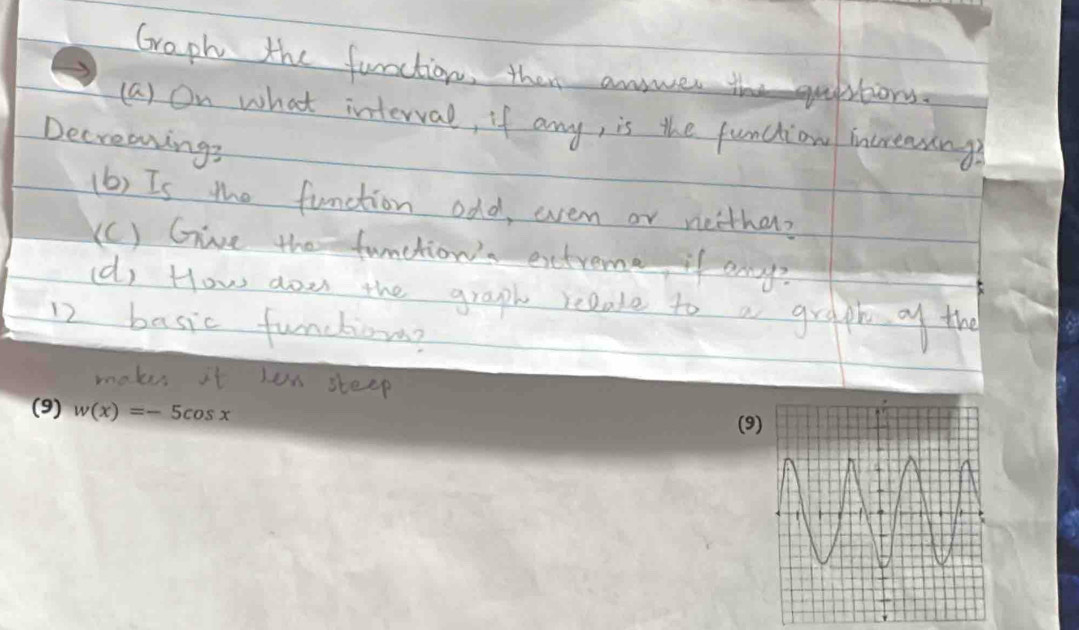 Graph the function, then answer the questions.
(a) On what interval, if any, is the function increasing?
Decreasing?
(b) Is the function odd, even or neither?
(c) Give the function's extreme, if any?
(d) How does the graph relate to a graph of the
12 basic functions?
makes it less steep
(9) w(x) = - 5cos x
(9)